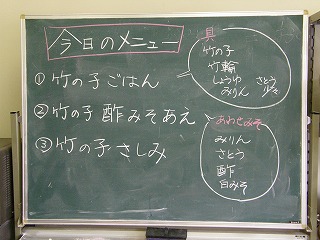 今日のメニュー
①竹の子ごはん
②竹の子酢みそあえ
③竹の子さしみ
具
竹の子
竹輪
しょうゆ さとう
みりん 少々
あわせみそ
みりん
さとう
酢
白みそ